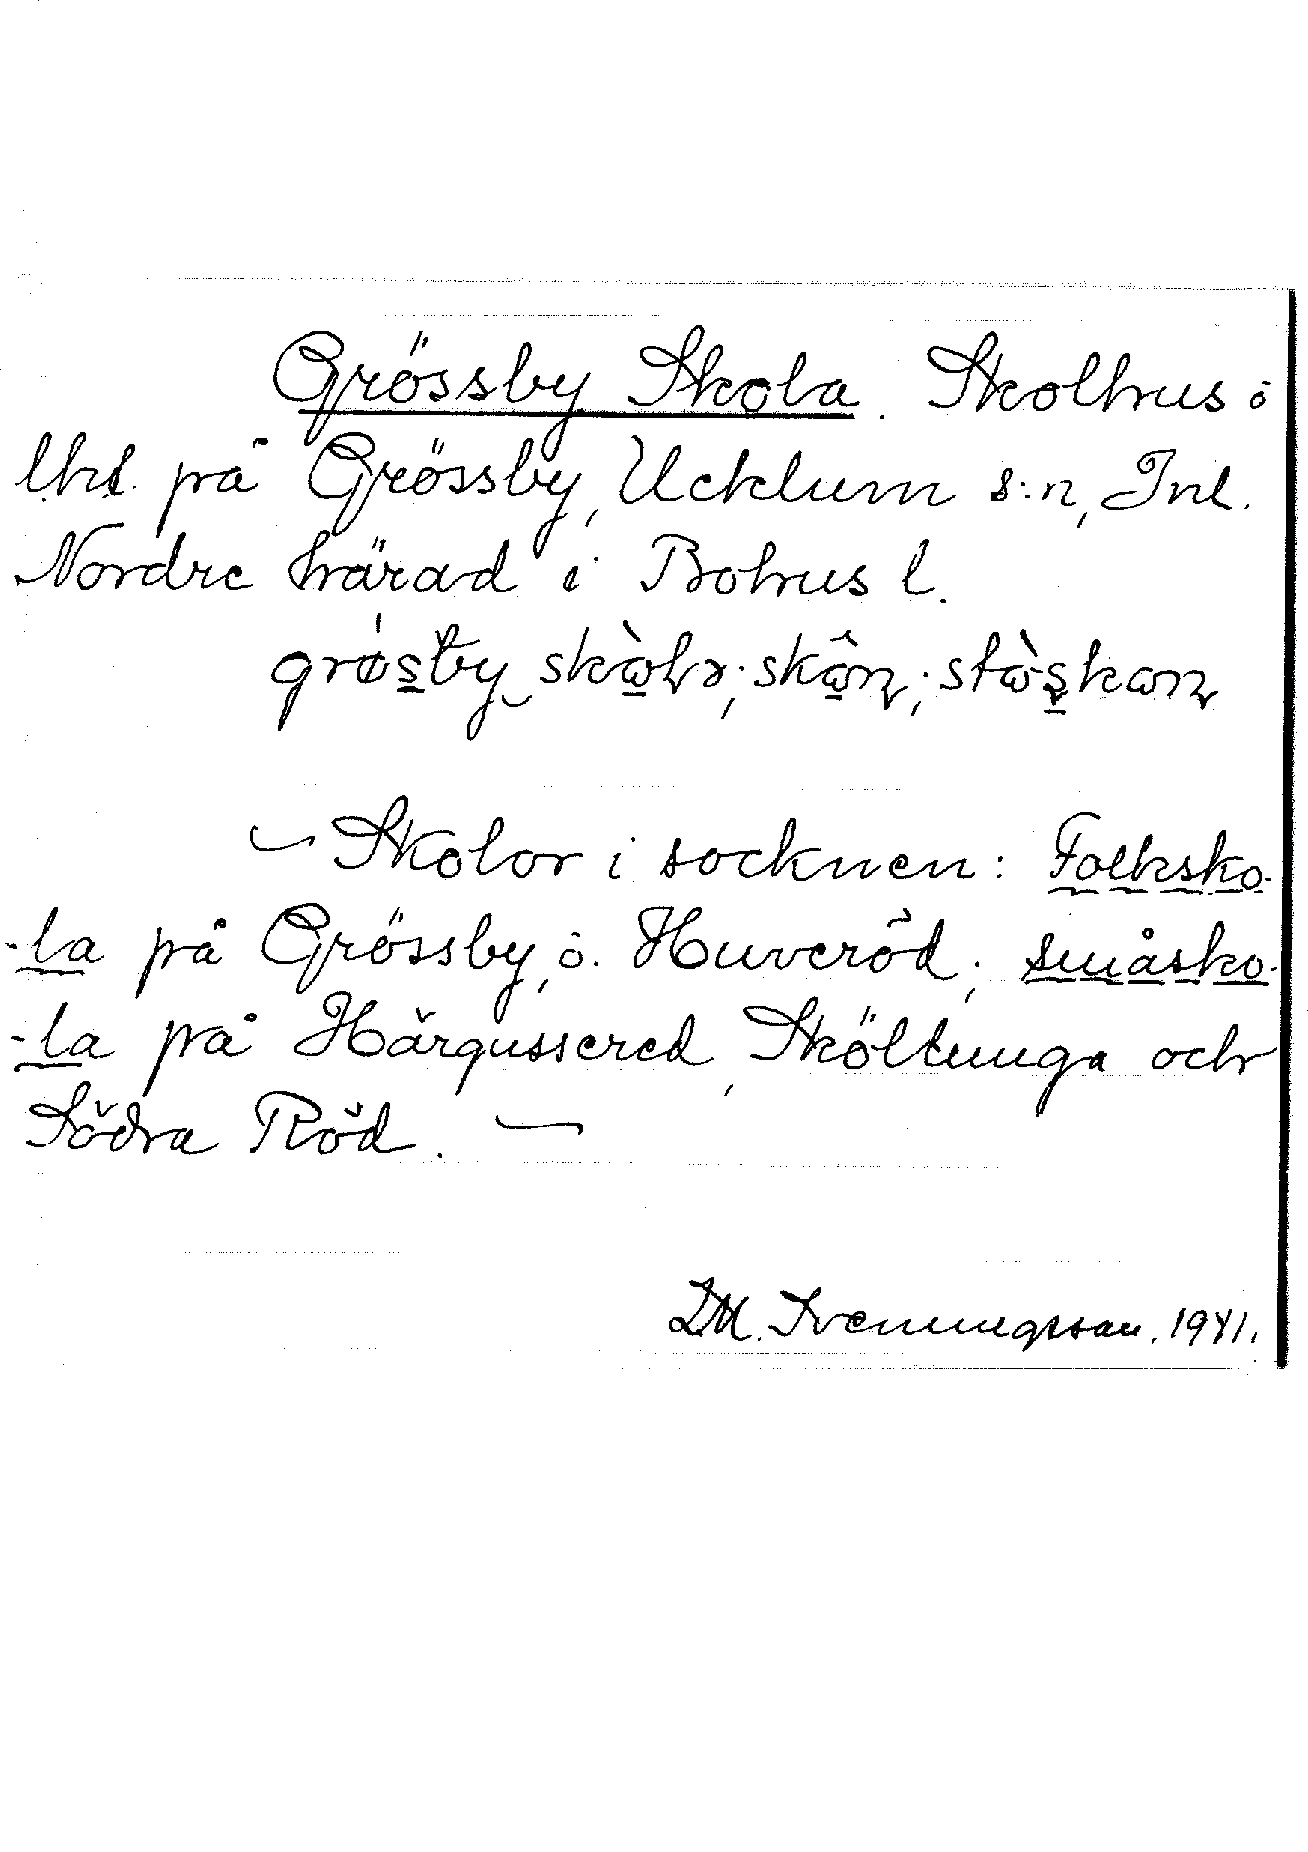 Grössby Skola. Skolhus o
lht. på Grössby, Ucklum s:n, Inl.
Nordre härad i Bohus l.
grø̀sby skàla; skân;
Skolor i socknen: Folksko-
-la på Grössby, o. Huveröd; småsko-
-la på Härgussered, Sköltunga och
Södra Röd. —
D.M. Svenningsson. 1941.